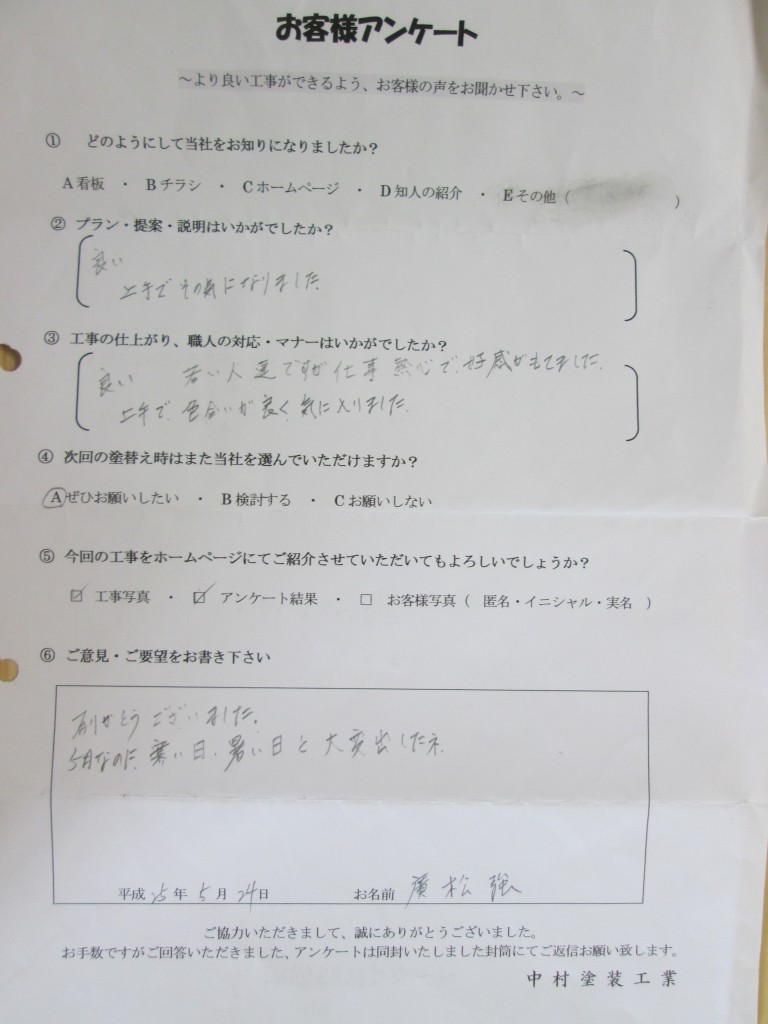 お客様アンケート
～より良い工事ができるよう、お客様の声をお聞かせ下さい。～
① どのようにして当社をお知りになりましたか？
A看板 ・ Bチラシ ・ Cホームページ ・ D知人の紹介 ・ Eその他（ ）
② プラン・提案・説明はいかがでしたか？
良い
上手でその気になりました
③ 工事の仕上がり、職人の対応・マナーはいかがでしたか？
良い 若い人達ですが仕事熱心で、好感がもてました。
上手で、色合いが良く、気に入りました。
④ 次回の塗替え時はまた当社を選んでいただけますか？
Aぜひお願いしたい ・ B検討する ・ Cお願いしない
⑤ 今回の工事をホームページにてご紹介させていただいてもよろしいでしょうか？
☑ 工事写真 ・ ☑ アンケート結果 ・ □ お客様写真（ 匿名・イニシャル・実名 ）
⑥ ご意見・ご要望をお書き下さい
有りがとうございました。
5月なのに、寒い日、暑い日と大変でしたネ
平成25年5月24日 お名前 廣松 強
ご協力いただきまして、誠にありがとうございました。
お手数ですがご回答いただきました、アンケートは同封いたしました封筒にてご返信お願い致します。
中村塗装工業